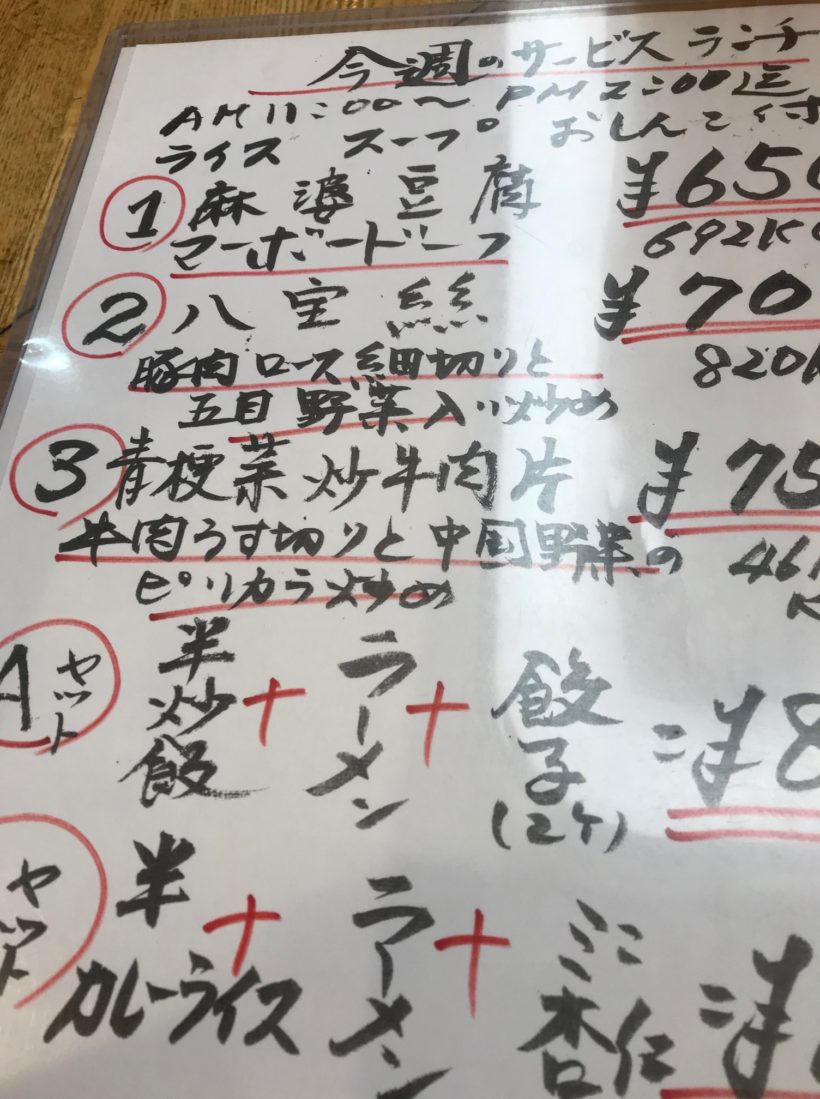 今週のサービスランチ
AM11:00〜PM2:00迄
ライス スープ おしんこ付
① 麻婆豆腐 ¥650
マーボードーフ 692K
② 八宝絲 ¥70
豚肉ロース細切りと 820K
五目野菜入り炒め
③ 青梗菜炒牛肉片 ¥75
牛肉うす切りと中国野菜の 461K
ピリカラ炒め
Aセット 半炒飯+ラーメン+餃子(2ケ) ¥8
セット 半カレーライス+ラーメン+ミニ杏仁 ¥